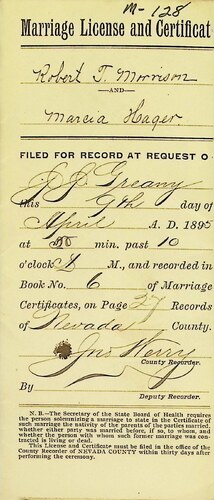 M-128
Marriage License and Certificat
Robert T. Morrison
AND
Marcia Hager
FILED FOR RECORD AT REQUEST O
J. J. Greany
this 9th day of
April A. D. 1895
at 50 min. past 10
o'clock A M., and recorded in
Book No. 6 of Marriage
Certificates, on Page 27 Records
of Nevada County.
Jno Werry
County Recorder.
By
Deputy Recorder.
N. B.—The Secretary of the State Board of Health requires
the person solemnizing a marriage to state in the Certificate of
such marriage the nativity of the parents of the parties married,
whether either party was married before, if so, to whom, and
whether the person with whom such former marriage was con-
tracted is living or dead.
This License and Certificate must be filed in the office of the
County Recorder of NEVADA COUNTY within thirty days after
performing the ceremony.